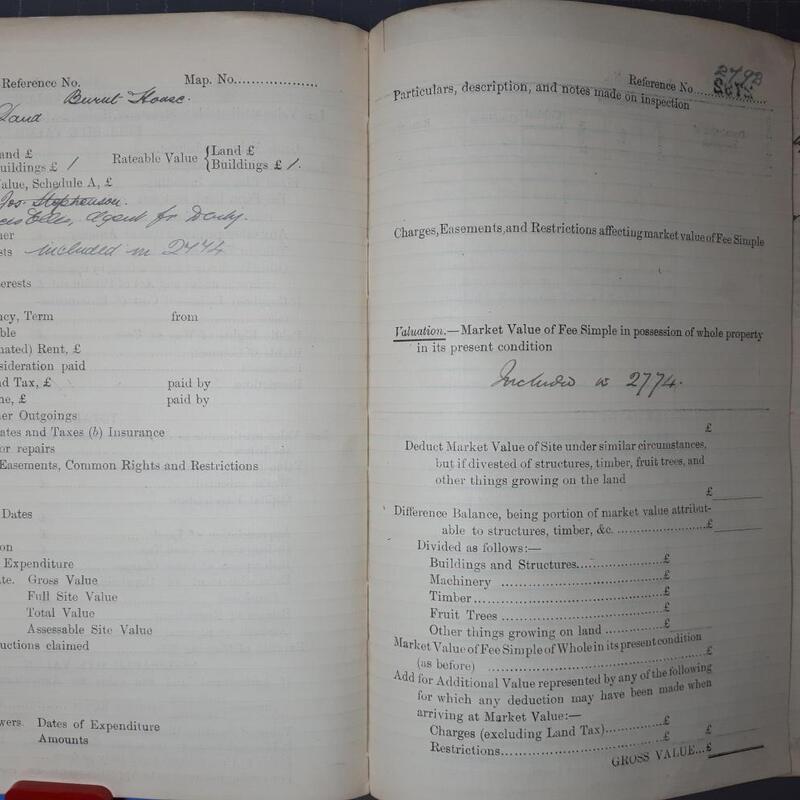 Reference No. Map. No...................
Burnt House.
Land
and £
Rateable Value { Land £
uildings £ 1
Buildings £ 1.
alue, Schedule A, £
Jos. Stephenson.
Agent for Danby.
ner
sts included in 2774
terests
ncy, Term from
ble
nated) Rent, £
sideration paid
d Tax, £ paid by
ne, £ paid by
er Outgoings
ates and Taxes (b) Insurance
or repairs
Easements, Common Rights and Restrictions
Dates
on
Expenditure
te. Gross Value
Full Site Value
Total Value
Assessable Site Value
uctions claimed
wers. Dates of Expenditure
Amounts
2793
Reference No..................
Particulars, description, and notes made on inspection
Charges, Easements, and Restrictions affecting market value of Fee Simple
Valuation.—Market Value of Fee Simple in possession of whole property
in its present condition
Included in 2774.
£
Deduct Market Value of Site under similar circumstances,
but if divested of structures, timber, fruit trees, and
other things growing on the land
£
Difference Balance, being portion of market value attribut-
able to structures, timber, &c. ......................£
Divided as follows:—
Buildings and Structures....................£
Machinery ....................................£
Timber..........................................£
Fruit Trees ....................................£
Other things growing on land ..............£
Market Value of Fee Simple of Whole in its present condition
(as before) ..............................................£
Add for Additional Value represented by any of the following
for which any deduction may have been made when
arriving at Market Value:—
Charges (excluding Land Tax)..............£ £
Restrictions....................................£
GROSS VALUE...£